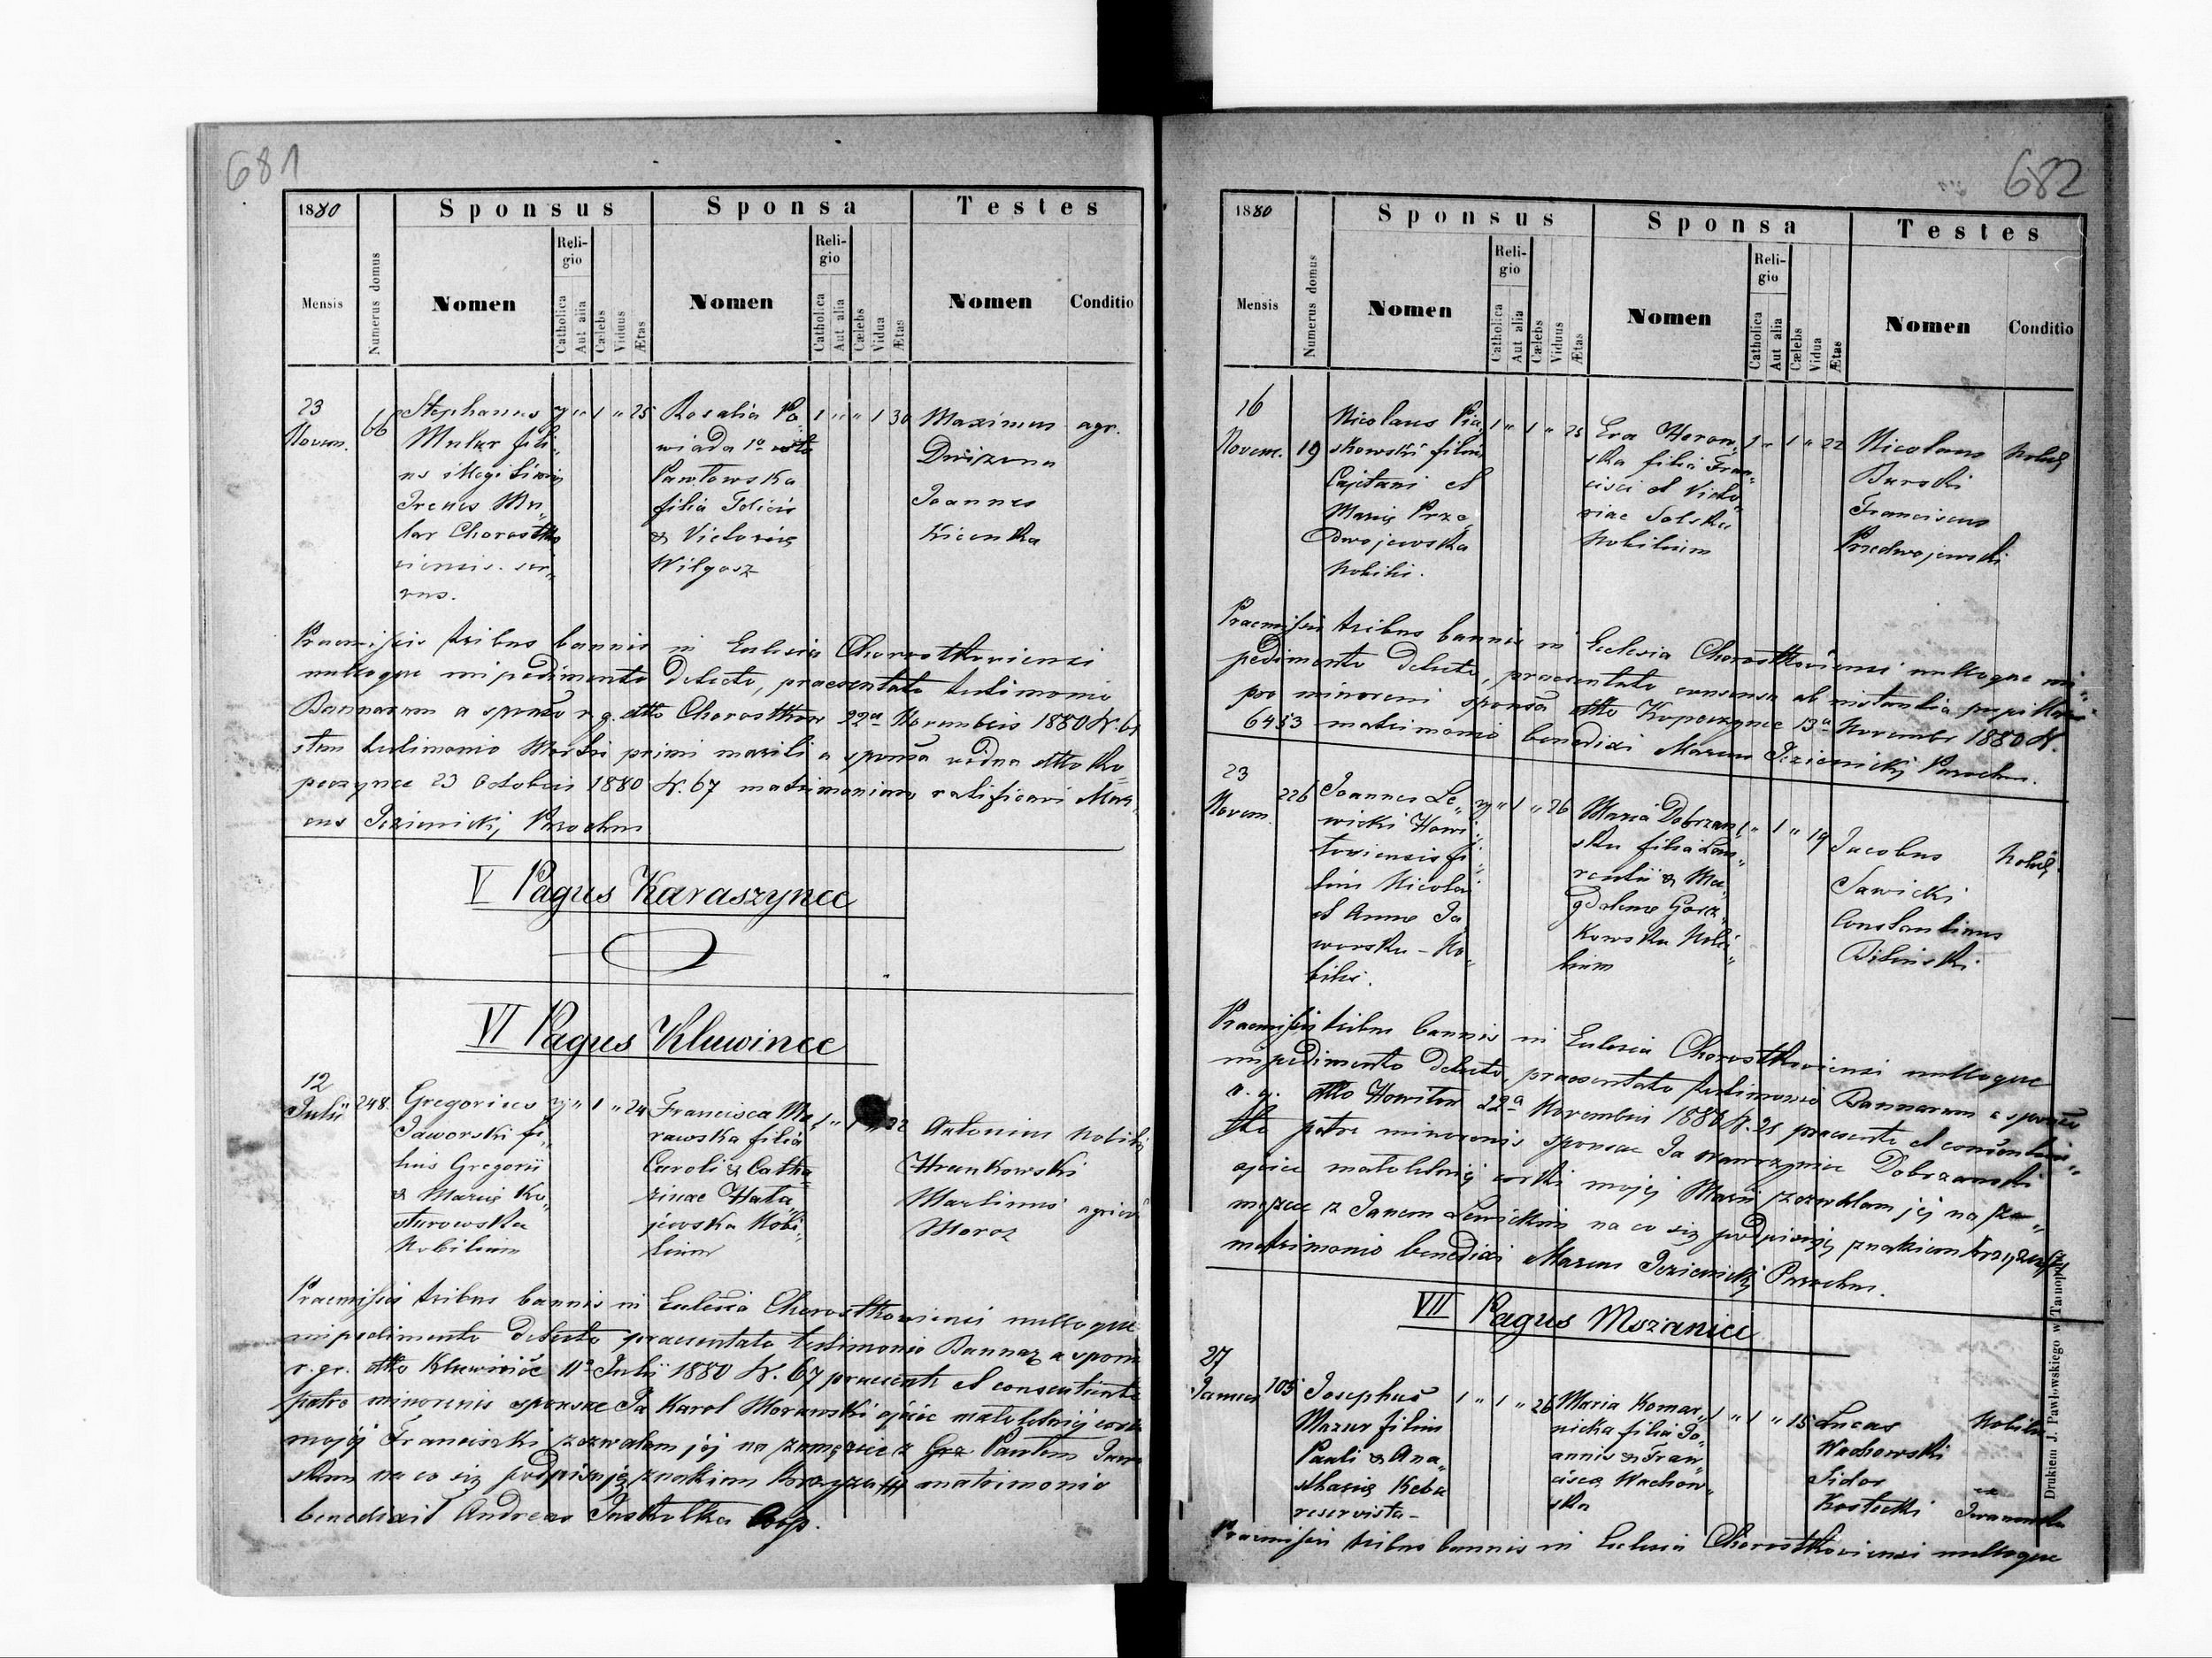 681
1880
Sponsus
Sponsa
Testes
Mensis
Numerus domus
Nomen
Religio
Catholica
Aut alia
Cælebs
Viduus
Ætas
Nomen
Religio
Catholica
Aut alia
Cælebs
Vidua
Ætas
Nomen
Conditio
23
Novem.
66
Stephanus
Mular fili„
us
Irenes Mu„
lar Chorostko„
viensis. ser„
vus.
1 „ 25
Rosalia Po„
wiada 1o voto
Pawłowska
filia Felicis
& Victoriæ
Wilgosz
1 „ „ 1 30
Maximus
Joannes
Kicenka
agr.
Praemissis tribus bannis in Eclesia Chorostkoviensi
nulloque impedimento detecto, praesentato testimonio
Bannarum a sponso r. g. dtto Chorostkow 22a Novembris 1880 N. 61
item testimonio Mortis primi mariti a sponsa vidua dtto Ko„
peczynce 23 Octobris 1880 N. 67 matrimonium ratificavi Mar„
cus Jezienicki, Parochus
V Pagus Karaszynce
VI Pagus Kluwince
12
Julii
248
Gregorius
Jaworski fi„
lius Gregorii
& Mariæ Ko„
sturowska
Nobilium
„ 1 „ 24
Francisca Mo„
rawska filia
Caroli & Catha„
rinae Hała„
jewska Nobi„
lium
1 „ 1 22
Antonius
Hrankowski
Martinus
Moroz
Nobilis
agricola
Praemissis tribus bannis in Eclesia Chorostkowiensi nulloque
impedimento detecto praesentato testimonio Bannar. a sponso
r. gr. dtto Kluwińce 11a Julii 1880 N. 67 praesente et consentiente
patre minorenis sponsae Ja Karol Morawski ojciec małoletniej córki
mojej Franciszki zezwalam jej na zamęzcie z Pawłem Jawor
skim na co się podpisuję znakiem krzyza ## matrimonio
benedixit Andreas Jaskulka Coop.
682
1880
Sponsus
Sponsa
Testes
Mensis
Numerus domus
Nomen
Religio
Catholica
Aut alia
Cælebs
Viduus
Ætas
Nomen
Religio
Catholica
Aut alia
Cælebs
Vidua
Ætas
Nomen
Conditio
16
Novem.
19
Nicolaus Pia„
skowski filius
Cajetani et
Mariæ Prze„
dwojewska
Nobilis.
1 „ 1 „ 25
Eva Horow„
ska filia Fran„
cisci et Victo„
riae Solska
Nobilium
1 „ 1 „ 22
Nicolaus
Burski
Franciscus
Przedwojewski
Nobiles
Praemissis tribus bannis in Eclesia Chorostkoviensi nulloque im„
pedimento detecto, praesentato consensu ab instantia pupillari
pro minoreni sponsa dtto Kopeczynce 13a Novembr 1880 N.
6453 matrimonio benedixi Marcus Jezienicki Parochus.
23
Novem.
226
Joannes Le„
wicki Howi„
loviensis fi„
lius Nicolai
et Annæ Ja„
worska - No„
bilis.
„ 1 „ 26
Maria Dobrzan„
ska filia Lau„
rentii & Ma„
gdalenæ Gosz„
kowska Nobi„
lium
1 „ 1 „ 19
Jacobus
Sawicki
Constantinus
Biliński
Nobiles
Praemissis tribus bannis in Eclesia Chorostkoviensi nulloque
impedimento detecto, praesentato testimonio Bannarum a sponso
r. g. dtto Howilow 22a Novembris 1880 N. 21 praesente et consentien„
te patre minorenis sponsae Ja Wawrzyniec Dobrzanski
ojciec małoletniej córki mojej Maryi zezwalam jej na za„
męzcie z Janem Lewickim na co się podpisuję znakiem krzyza
matrimonio benedixi Marcus Jezienicki Parochus.
VII Pagus Mszaniec
27
Januar
105
Josephus
Mazur filius
Pauli & Ana„
stasiæ Keba
reservista-
1 „ 1 „ 26
Maria Komar„
nicka filia Jo„
annis & Fran„
ciscæ Wachow„
ska
1 „ 1 „ 15
Lucas
Wachowski
Sidor
Kostecki
Nobilis
ex
Iwanówka
Praemissis tribus bannis in Eclesia Chorostkoviensi nulloque
Drukiem J. Pawłowskiego w Tarnopolu